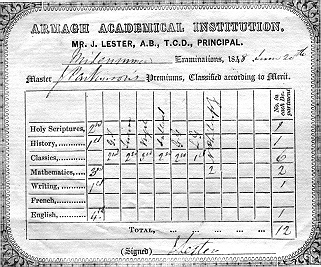 ARMAGH ACADEMICAL INSTITUTION.
MR. J. LESTER, A.B., T.C.D., PRINCIPAL.
Midsummer Examinations, 1848 June 20th
Master Premiums, Classified according to Merit.
No. in each Department
Holy Scriptures, 2nd 1
History, 1st 1
Classics, 2nd 2nd 3rd 2nd 2nd 1st 6
Mathematics, 3rd 2 2
Writing, 1st 1
French,
English, 4th 1
TOTAL, ... ... ... ... 12
(Signed) J Lester